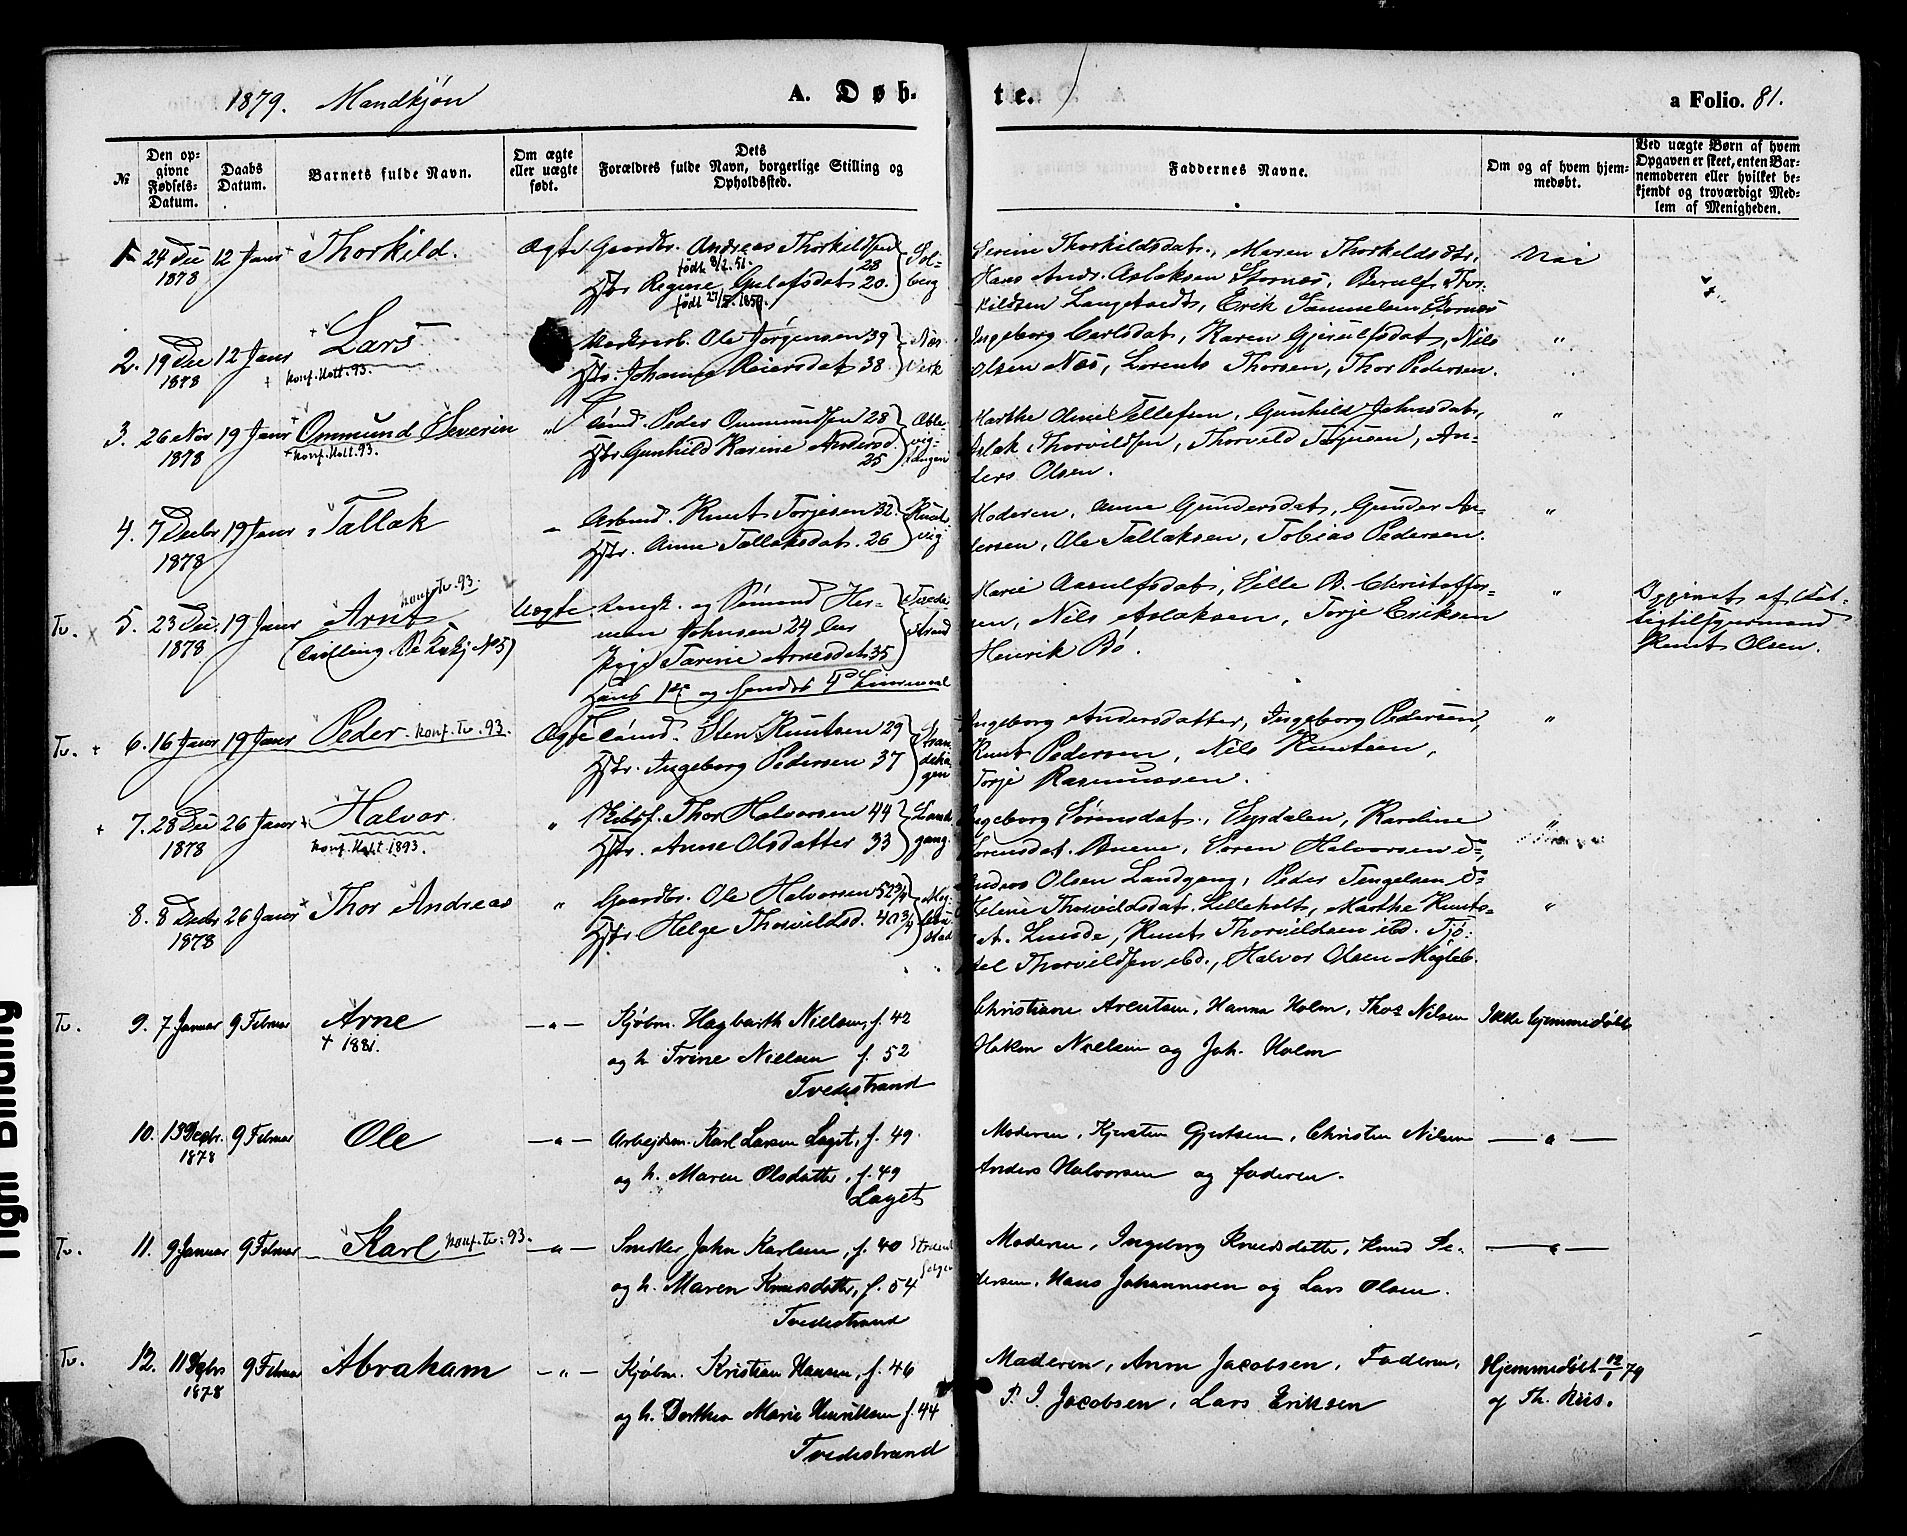 1879. Mandkjøn
A. Døb-
te.
a Folio. 81.
№
Den op-
givne
Fødsels-
Datum.
Daabs
Datum.
Barnets fulde Navn.
Om ægte
eller uægte
født.
Dets
Forældres fulde Navn, borgerlige Stilling og
Opholdssted.
Faddernes Navne.
Om og af hvem hjem-
medøbt.
Ved uægte Børn af hvem
Opgaven er skeet, enten Bar-
nemoderen eller hvilket be-
kjendt og troværdigt Med-
lem af Menigheden.
1. 24 Dec 12 Janr Thorkild. Ægte Gaardbr. Andreas Thorkildsen
1878 født 8/2. 51. 28
Hstr Regine Gulofsdat 20.
født 27/5. 1859.
Sol-
berg
Serine Thorkildsdat., Maren Thorkeldsdtr.
Hans Andr. Aslaksen Stornæs, Berulf Tor-
kildsen Langetvedt, Erik Samuelsen Stornæs
Nei
2. 19 Dec 12 Janr Lars
1878 konf. Holt. 93.
Ole Jørgensen 39
Hstr. Johanne Reiersdat 38.
Næs
Verk
Ingeborg Carlsdat, Karen Gjerulfsdat, Nils
Olsen Næs, Lorents Thorsen, Thor Pedersen.
"
3. 26 Nov 19 Janr Ommund Severin "
1878 konf. Holt. 93.
Tømd. Peder Ommundsen 28
Hstr Gunhild Karine Andersd.
25
vig-
tangen
Marthe Oline Tellefsen, Gunhild Johnsdat,
Aslak Thorvildsen, Thorvild Terjesen, An-
ders Olsen.
"
4. 7 Decbr 19 Janr Tallak
1878
Arbmd. Knut Torjesen 32.
Hstr. Anne Tallaksdat. 26
vig
Moderen, Anne Gundersdat, Gunder An-
dersen, Ole Tallaksen, Tobias Pedersen.
"
Tv. x 5. 23 Dec. 19 Janr Arnt konf. Tv. 93.
1878 (Tvilling. Se Kvkj No 5)
Uægte
Ungk. og Sømand Her-
man Johnsen 24 Aar
Pige Tarine Arnesdat 35
Hans 1ste og hendes 4de Leiermaal
Tvede-
strand
Marie Aasulfsdat, Sille B. Christoffer-
sen, Nils Aslaksen, Torje Eriksen
Henrik Bø.
"
Opgivet af Fat-
tigtilsynsmand
Knut Olsen.
Tv. + 6. 16 Janr 19 Janr Peder konf. Tv. 93. Ægte
Tømd. Sten Knutsen 29
Hstr. Ingeborg Pedersen 37
Stran-
deha-
gen
Ingeborg Andersdatter, Ingeborg Pedersen,
Knut Pedersen, Nils Knutsen,
Torje Rasmussen.
"
+ 7. 28 Dec 26 Janr Halvor. "
1878 konf. Holt 1893.
Thor Halvorsen 44
Hstr. Anne Olsdatter 33
Land-
gang
Ingeborg Sørensdat., Sysdalen, Karoline
Sørensdat. Buene, Søren Halvorsen do,
Andreas Olsen Landgang, Peder Tengelsen do
"
8. 8 Decbr 26 Janr Thor Andreas "
1878
Gaardbr. Ole Halvorsen 52 3/4
Hstr Helge Thorvildsd. 40 3/4
Møg-
lebu-
stad
Helene Thorvildsdat. Lilleholt, Marthe Knuts-
dat. Lunde, Knut Thorvildsen ibd. Tjø-
del Thorvildsen ibd., Halvor Olsen Møgleb.
"
Tv. 9. 7 Januar 9 Februar Arne —"—
+ 1881.
Kjøbm. Hagbarth Nielsen, f. 42
og h. Trine Nielsen f. 52
Tvedestrand
Christiane Arentsen, Hanna Holm, Thor Nilsen
Haken Nielsen og Joh. Holm
Ikke hjemmedøbt
10. 13 Decbr. 9 Februar Ole —"—
1878
Arbejdsm. Karl Larsen Laget, f. 49.
og h. Maren Olsdatter, f. 49
Laget
Moderen, Kjersten Gjertsen, Christen Nilsen
Anders Halvorsen og faderen.
—"—
Tv. 11. 9 Januar 9 Februar Karl konf. Tv. 93. —"—
Snekker John Karlsen, f. 40
og h. Maren Knudsdatter, f. 54
Tvedestrand
Moderen, Ingeborg Knudsdatter, Knud Pe-
dersen, Hans Johannesen og Lars Olsen.
—"—
Tv. 12. 11 Decbr 9 Februar Abraham —"—
1878
Kjøbm. Kristian Hansen, f. 46
og h. Dorthea Marie Henriksen f. 44
Tvedestrand
Moderen, Anne Jacobsen, Faderen,
P. I. Jacobsen, Lars Eriksen
Hjemmedøbt 12/1 79
af Th. Riis.
Tight Binding